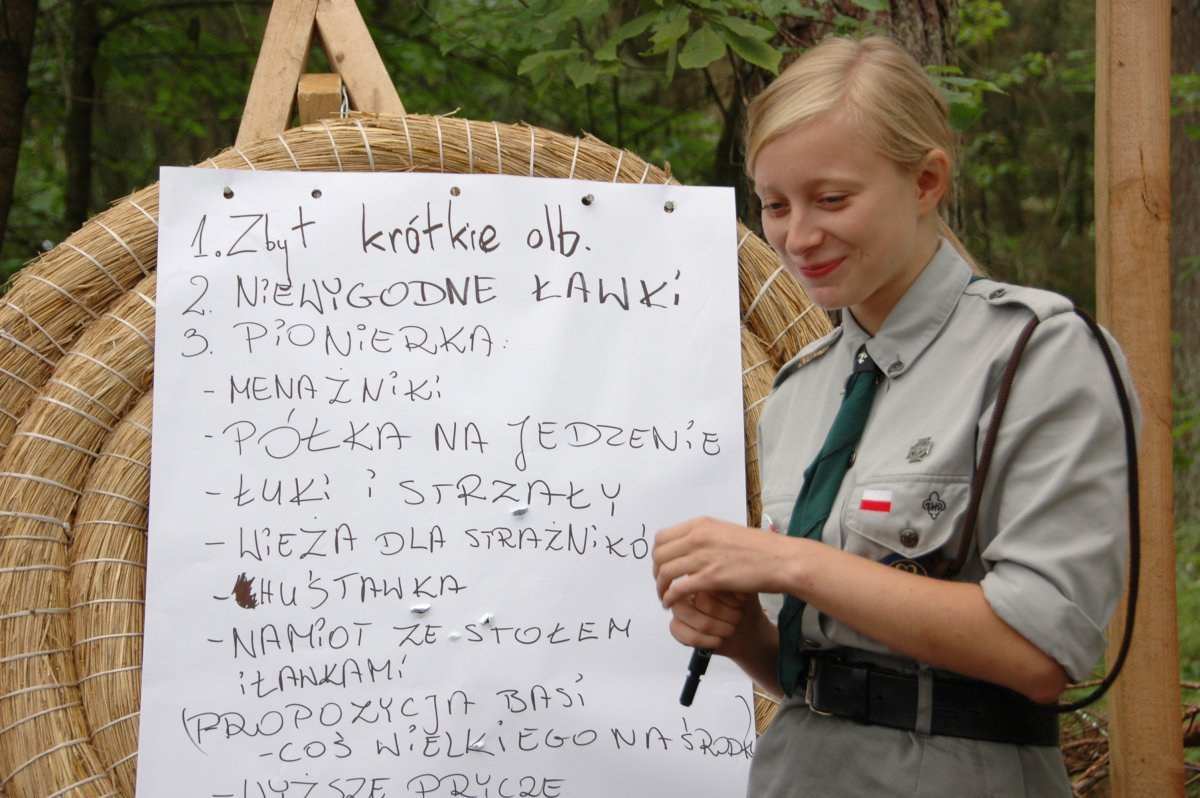 1. Zbyt krótkie olb.
2. NIEWYGODNE ŁAWKI
3. PIONIERKA:
- MENAŻNIKI
- PÓŁKA NA JEDZENIE
- ŁUKI I STRZAŁY
- WIEŻA DLA STRAŻNIKÓ
- HUŚTAWKA
- NAMIOT ZE STOŁEM
I ŁAWKAMI
(PROPOZYCJA BASI
- COŚ WIELKIEGO NA ŚRODKU)
- WYŻSZE PRYCZE